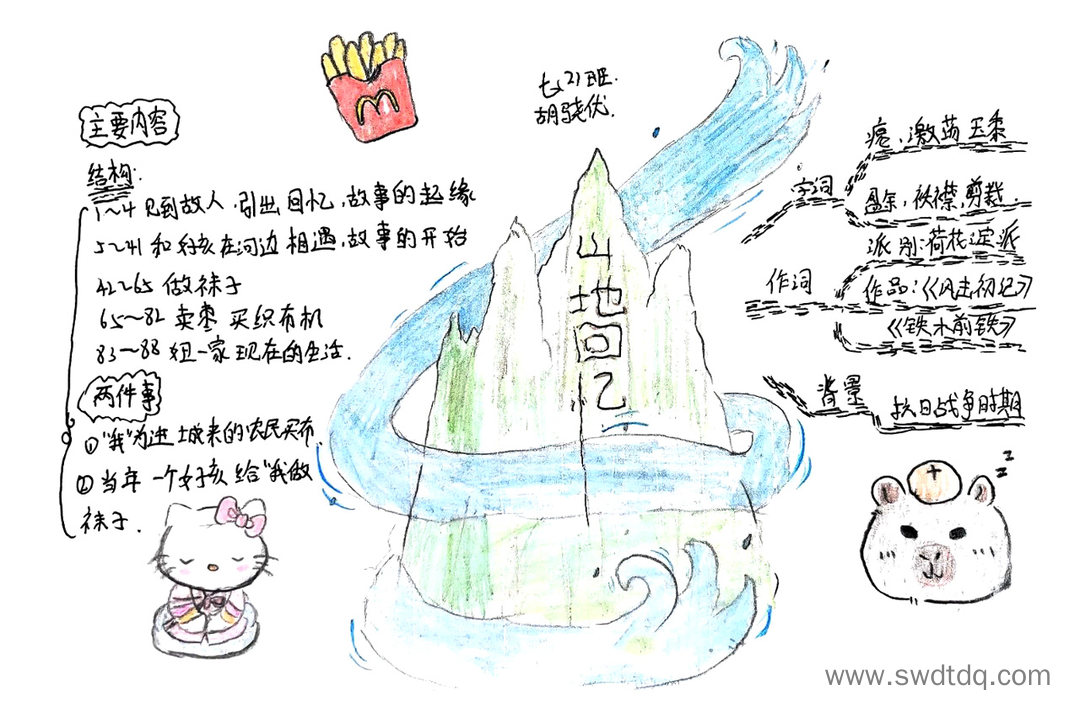 七21班.
胡骁优.
山地回忆
主要内容
结构:
1~4 见到故人,引出回忆,故事的起缘
5~41 和女孩在河边相遇,故事的开始
42~65 做袜子
65~82 卖枣 买织布机
83~88 妞一家现在的生活.
两件事
①"我"为进城来的农民买布.
②当年一个女孩给"我做
袜子.
字词
疤,激蓝 玉黍
盈余,袄襟,剪裁
作词
派别:荷花淀派
作品:《风击初记》
《铁木前铁》
背景
抗日战争时期
z
z
www.swdtdq.com